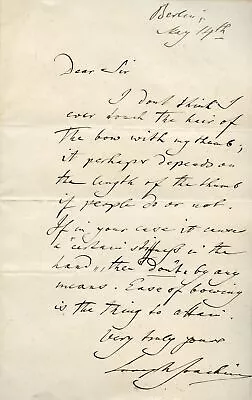 Berlin,
May 14th
Dear Sir
I dont think I
ever touch the hair of
the bow with my thumb;
it perhaps depends on
the length of the thumb
if people do or not.
If in your case it cause
a "certain stiffness in the
hand", then don't by any
means. Ease of bowing
is the thing to attain.
Very truly yours
Joseph Joachim